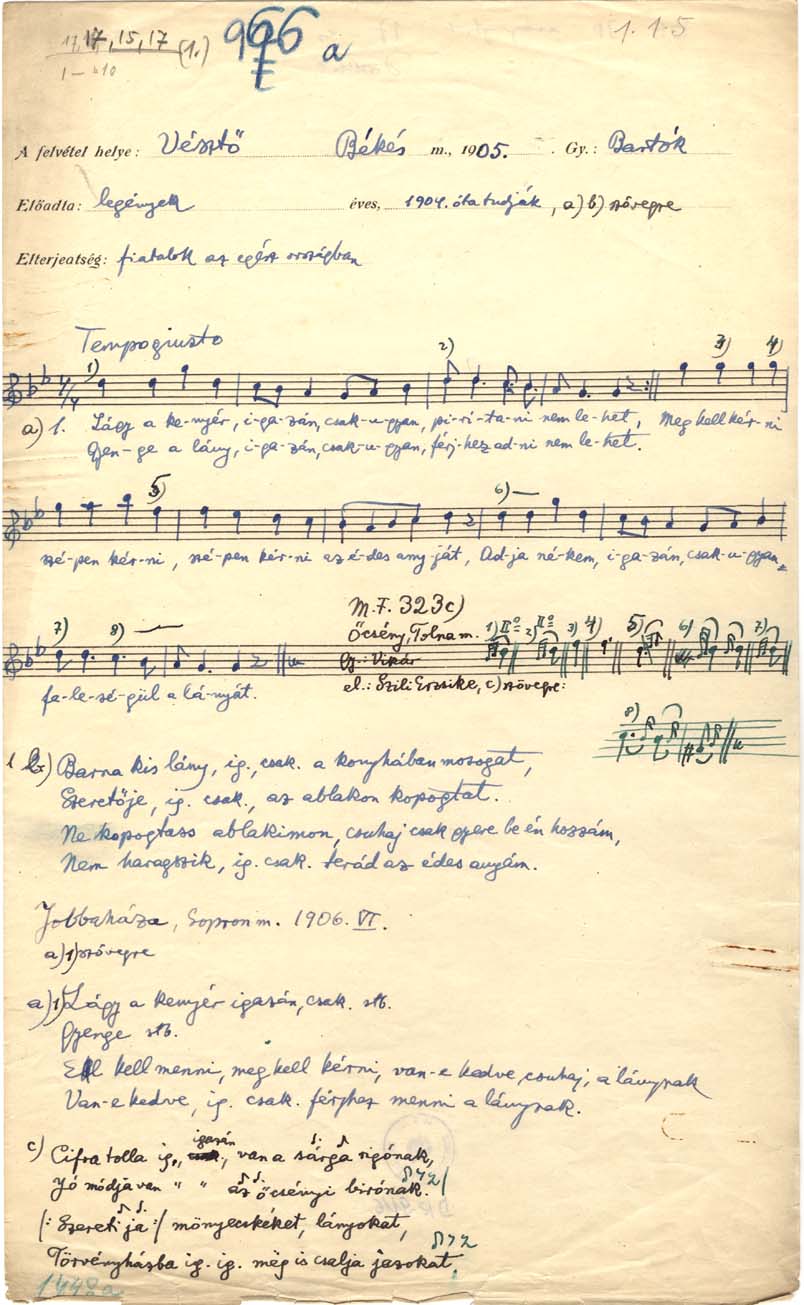 17, 17, 15, 17 (1.) 966 a 1. 1-5
1 – 10
A felvétel helye: Vésztő Békés m., 1905. Gy.: Bartók
Előadta: legények éves, 1904. óta tudják, a) b) szövegre
Elterjedtség: fiatalok az egész országban
Tempo giusto
1) 2) 3) 4)
a) 1. Lágy a ke-nyér, i-ga-zán, csak-u-gyan, pi-rí-ta-ni nem le-het, Meg kell kér-ni
Gyen-ge a lány, i-ga-zán, csak-u-gyan, férj-hez ad-ni nem le-het.
5) 6)
szé-pen kér-ni, szé-pen kér-ni az é-des any-ját, Ad-ja né-kem, i-ga-zán, csak-u-gyan,
M.F. 323c)
Őcsény, Tolna m.
7) 8) 1) IIo 2) IIo 3) 4) 5) 6) 7)
Gy.: Vikár
fe-le-sé-gül a lá-nyát.
el.: Szili Erzsike, c) szövegre:
8)
1 b) Barna kis lány, ig., csak. a konyhában mosogat,
Szeretője, ig. csak., az ablakon kopogtat.
Ne kopogtass ablakimon, csuhaj csak gyere be én hozzám,
Nem haragszik, ig. csak. terád az édes anyám.
Jobbaháza, Sopron m. 1906. VI.
a) 1) szövegre
a) 1) Lágy a kenyér igazán, csak. stb.
Gyenge stb.
El kell menni, meg kell kérni, van-e kedve, csuhaj, a lánynak
Van-e kedve, ig. csak. férjhez menni a lánynak.
igazán
c) Cifra tolla ig., csak., van a sárga rigónak,
Jó módja van " " az őcsényi birónak.
|: Szereti ja :| mönyecskéket, lányokat,
Törvényházba ig. ig. még is csalja jazokat.
1442a